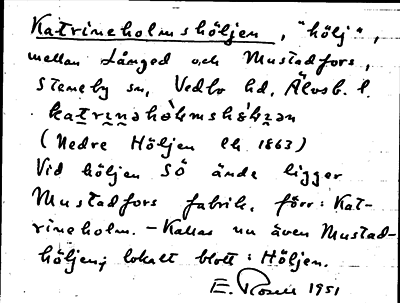 Katrineholmshöljen, "hölj",
mellan Långed och Mustadfors,
Steneby sn, Vedbo hd, Älvsb. l.
(Nedre Höljen Ek 1863)
Vid höljen SÖ ände ligger
Mustadfors fabrik, förr: Kat-
rineholm. - Kallas nu även Mustad-
höljen; lokalt blott: Höljen.
E. Rosell 1951